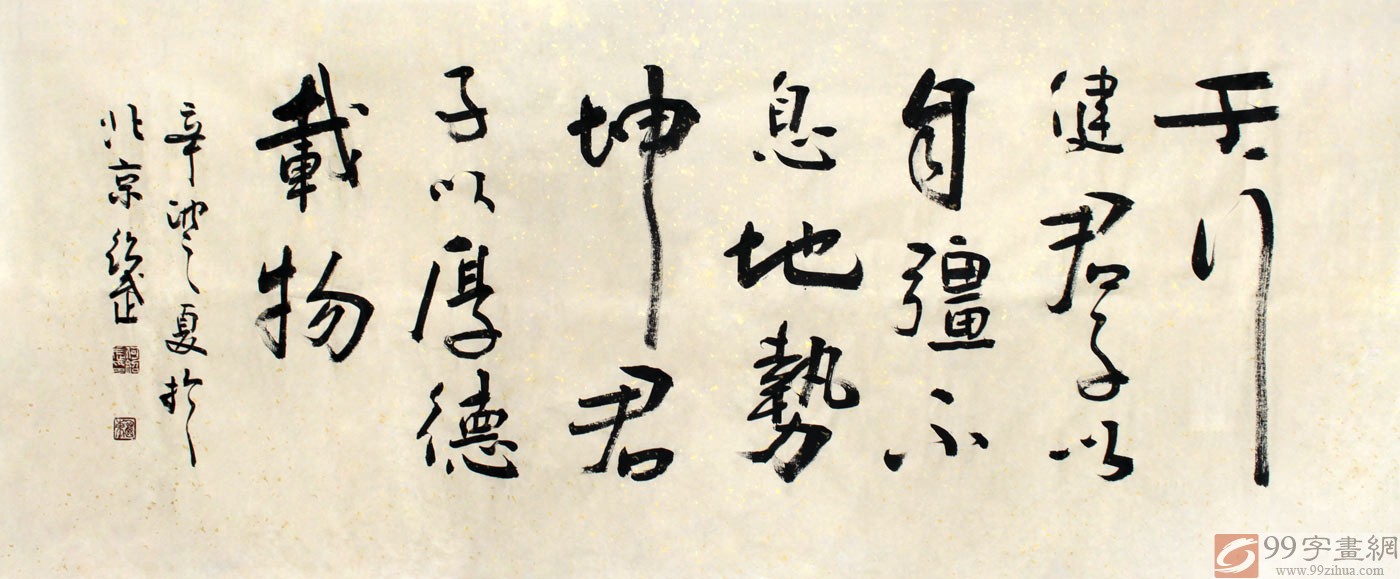 天行
健君子以
自彊不
息地勢
坤君
子以厚德
載物
辛卯之夏於
北京
99字畫網
www.99zihua.com